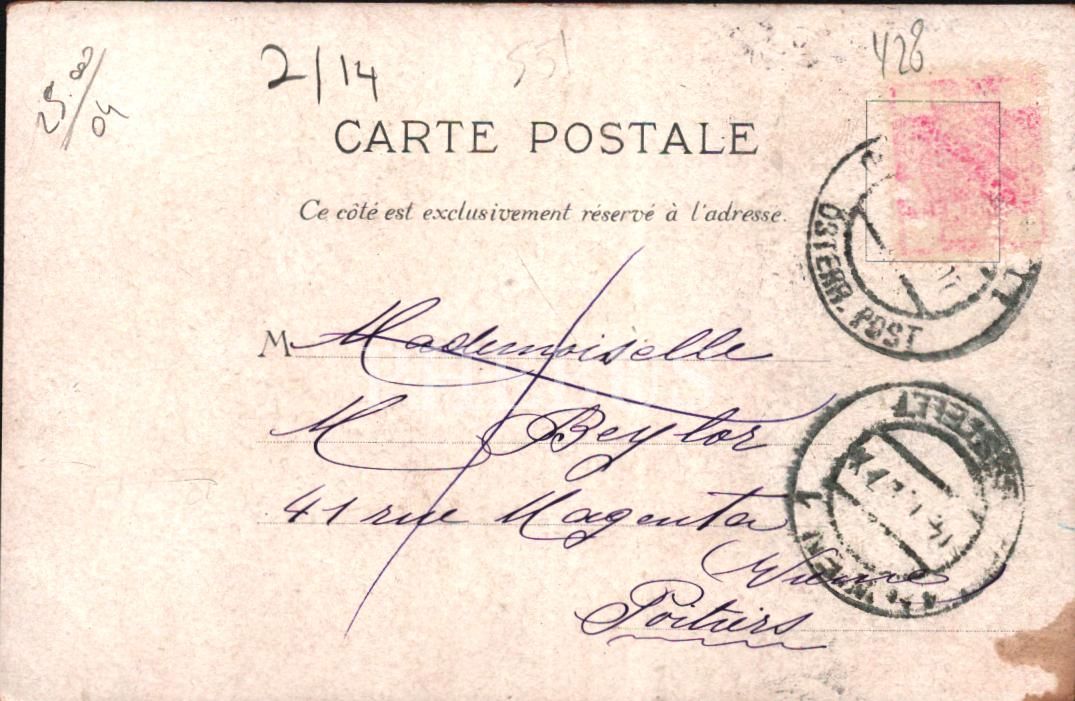 428
2/14
551
25.
04
CARTE POSTALE
Ce côté est exclusivement réservé à l'adresse.
ÖSTERR. POST
M Mademoiselle
M Beylor
41 rue Magenta
Vienne
Poitiers
1 WIEN 1
BESTELLT